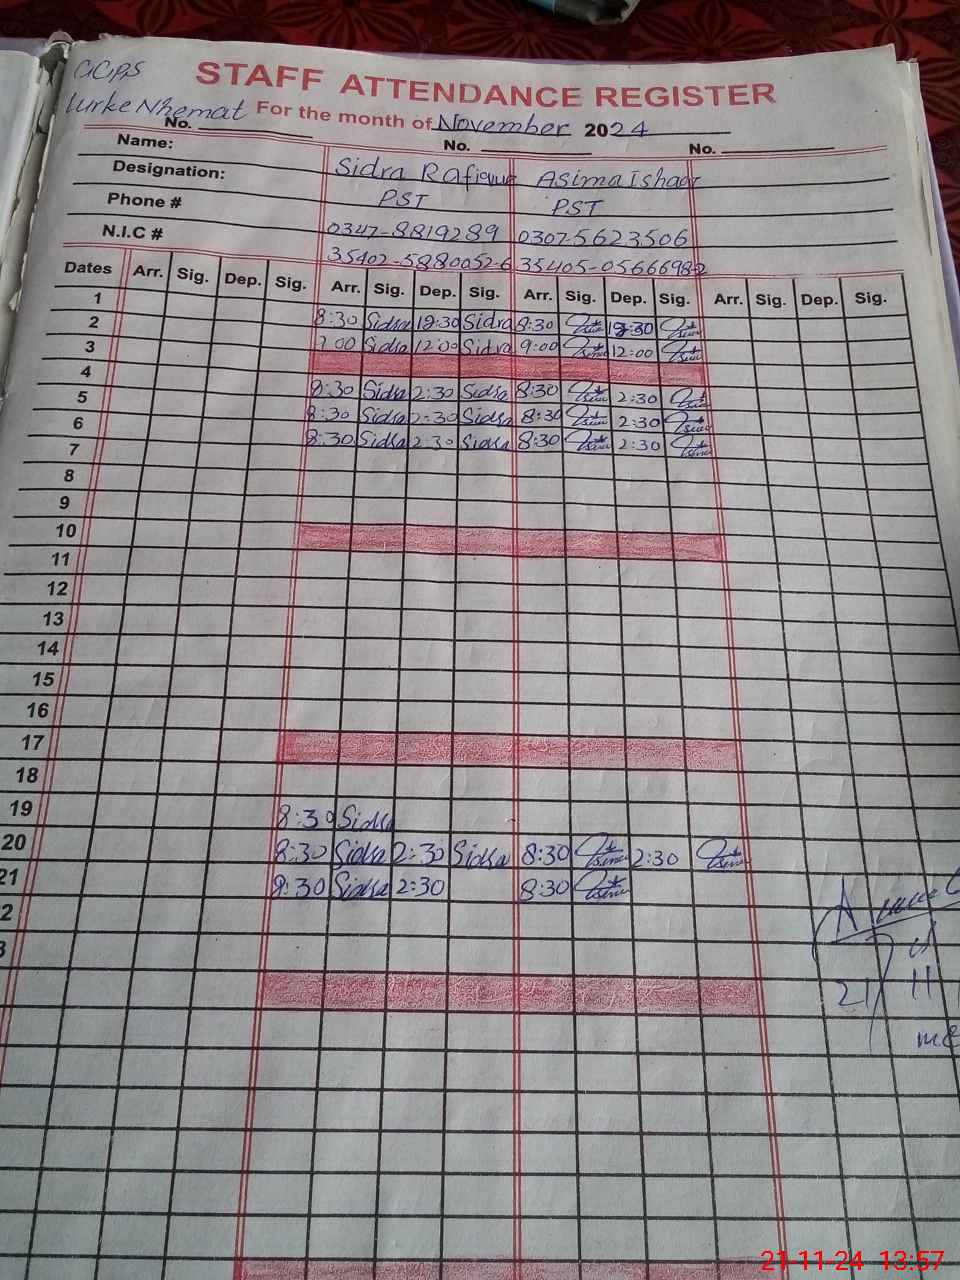 GGPS
STAFF ATTENDANCE REGISTER
Lurke Nhemat For the month of November 2024
No. No. No.
Name: Sidra Rafique Asima Ishaq
Designation: PST PST
Phone # 0347-8819289 0307-5623506
N.I.C # 35402-5880052-6 35405-0566698-2
Dates Arr. Sig. Dep. Sig. Arr. Sig. Dep. Sig. Arr. Sig. Dep. Sig. Arr. Sig. Dep. Sig.
1 8:30 Sidra 12:30 Sidra 8:30 12:30
2 9:00 Sidra 12:00 Sidra 9:00 12:00
3
4 8:30 Sidra 2:30 Sidra 8:30 2:30
5 8:30 Sidra 2:30 Sidra 8:30 2:30
6 8:30 Sidra 2:30 Sidra 8:30 2:30
7
8
9
10
11
12
13
14
15
16
17
18
19 8:30 Sidra
20 8:30 Sidra 2:30 Sidra 8:30 2:30
21 8:30 Sidra 2:30 8:30
2
3
21
11
21-11-24 13:57